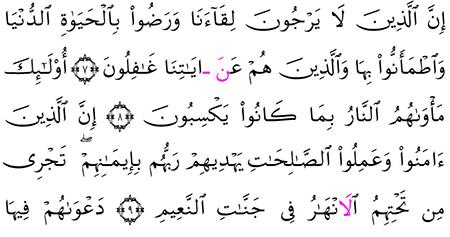 إِنَّ ٱلَّذِينَ لَا يَرْجُونَ لِقَآءَنَا وَرَضُواْ بِالْحَيَوٰةِ ٱلدُّنْيَا
وَٱطْمَأَنُّواْ بِهَا وَٱلَّذِينَ هُمْ عَنَ ـ ايَٰتِنَا غَٰفِلُونَ ٧ أُوْلَٰٓئِكَ
مَأْوَىٰهُمُ ٱلنَّارُ بِمَا كَانُواْ يَكْسِبُونَ ٨ إِنَّ ٱلَّذِينَ
ءَامَنُواْ وَعَمِلُواْ ٱلصَّٰلِحَٰتِ يَهْدِيهِمْ رَبُّهُم بِإِيمَٰنِهِمْ ۖ تَجْرِى
مِن تَحْتِهِمُ ٱلَانْهَٰرُ فِى جَنَّٰتِ ٱلنَّعِيمِ ٩ دَعْوَىٰهُمْ فِيهَا